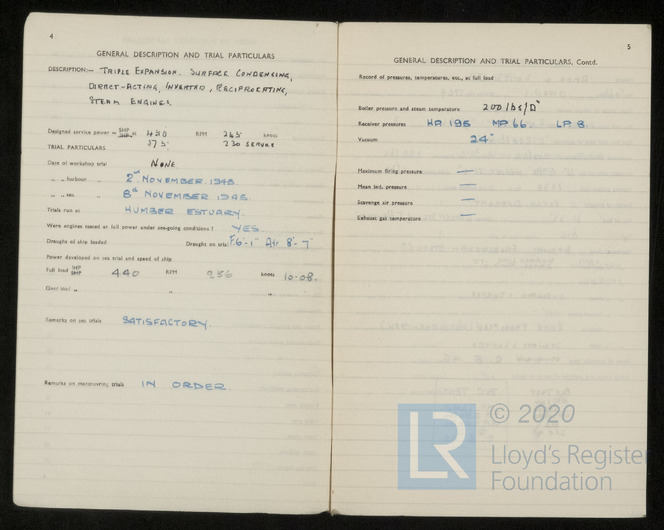 4
GENERAL DESCRIPTION AND TRIAL PARTICULARS
DESCRIPTION:— TRIPLE EXPANSION. SURFACE CONDENSING,
DIRECT-ACTING, INVERTED, RECIPROCATING,
STEAM ENGINES.
Designed service power = SHP 450 RPM 245 knots
TRIAL PARTICULARS 375 230 SERVICE
Date of workshop trial NONE
" " harbour " 2nd NOVEMBER 1945.
" " sea " 8th NOVEMBER 1945.
Trials run at HUMBER ESTUARY.
Were engines tested at full power under sea-going conditions? YES.
Draught of ship loaded Draught on trial F.6'-1" Aft 8'-7"
Power developed on sea trial and speed of ship
Full load IHP SHP 440 RPM 236 knots 10.08.
" "
Remarks on sea trials SATISFACTORY.
Remarks on manœuvring trials IN ORDER.
5
GENERAL DESCRIPTION AND TRIAL PARTICULARS, Contd.
Record of pressures, temperatures, etc., at full load
Boiler pressure and steam temperature 200 lbs/□"
Receiver pressures H.P. 195 M.P. 66 L.P. 8.
Vacuum 24"
Maximum firing pressure —
Mean ind. pressure —
Scavenge air pressure —
Exhaust gas temperature —
LR © 2020
Lloyd's Register
Foundation